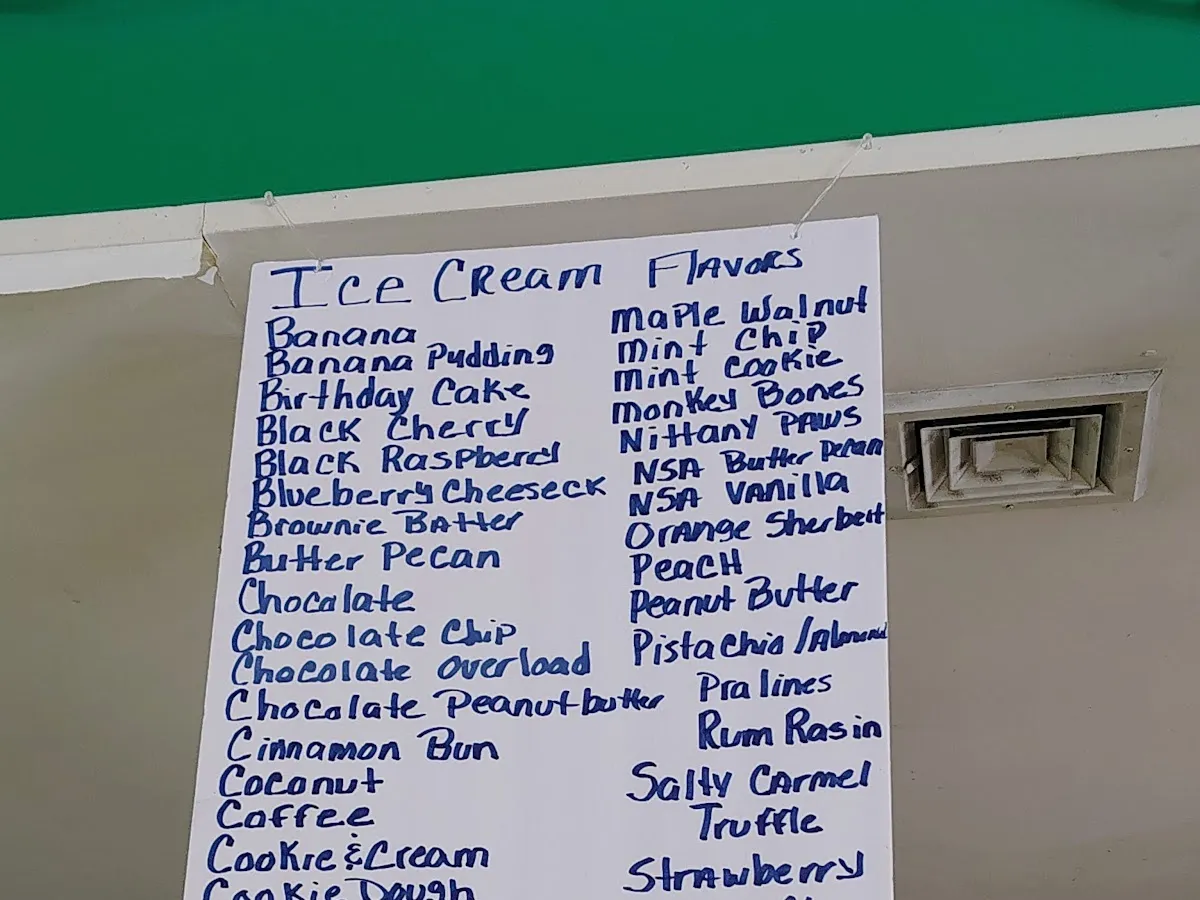 Ice Cream Flavors
Banana
Banana Pudding
Birthday Cake
Black Cherry
Black Raspberry
Blueberry Cheeseck
Brownie Batter
Butter Pecan
Chocolate
Chocolate Chip
Chocolate Overload
Chocolate Peanutbutter
Cinnamon Bun
Coconut
Coffee
Cookie & Cream
Cookie Dough
Maple Walnut
Mint Chip
Mint Cookie
Monkey Bones
Nittany Paws
NSA Butter Pecan
NSA Vanilla
Orange Sherbert
Peach
Peanut Butter
Pistachio/Almond
Pralines
Rum Rasin
Salty Carmel
Truffle
Strawberry